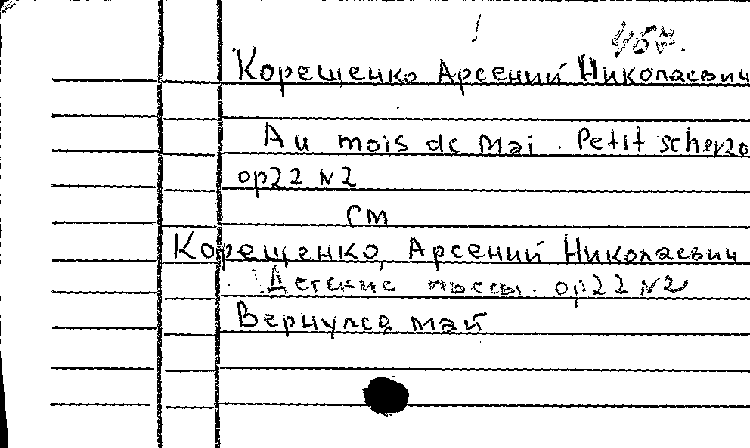 457.
Корещенко Арсений Николаевич
Au mois de mai. Petit scherzo
op22 N2
см
Корещенко, Арсений Николаевич
Детские пьесы. op22 N2
Вернулся май